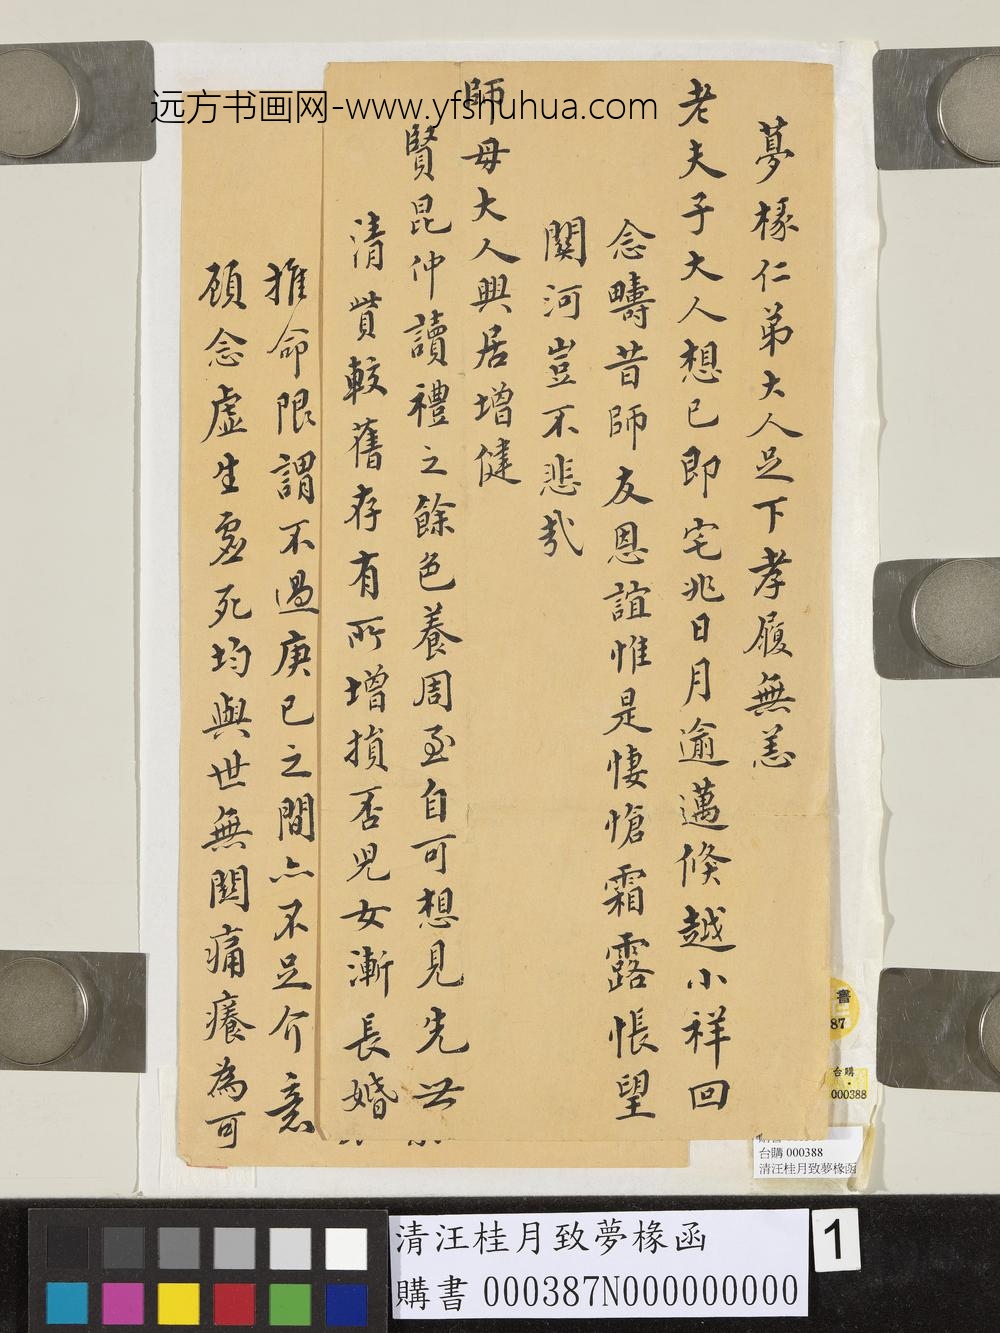 远方书画网-www.yfshuhua.com
夢椽仁弟大人足下孝履無恙
老夫子大人想已即宅兆日月逾邁倏越小祥回
念疇昔師友恩誼惟是悽愴霜露悵望
關河豈不悲哉
師母大人興居增健
賢昆仲讀禮之餘色養周至自可想見先世
清貲較舊存有所增損否兒女漸長婚
推命限謂不過庚巳之間亦不足介意
顧念虛生虛死均與世無關痛癢為可
書
387
台購
000388
台購 000388
清汪桂月致夢椽函
清汪桂月致夢椽函
購書 000387N000000000
1